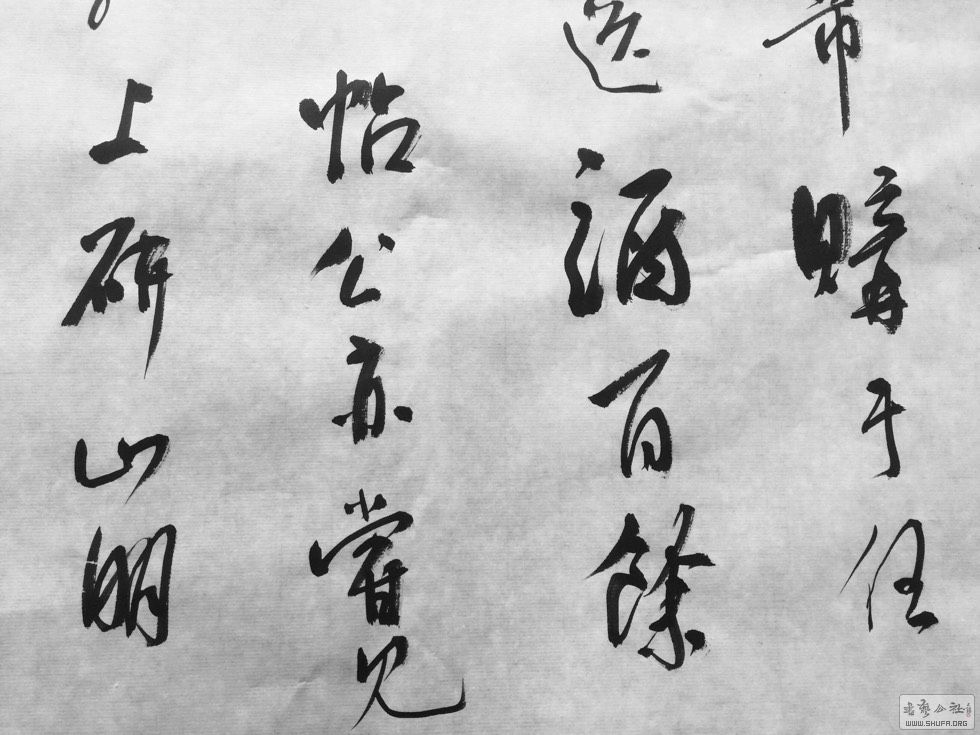 芾購于任
送酒百餘
帖公亦嘗見
上研山明
書藝公社
WWW.SHUFA.ORG